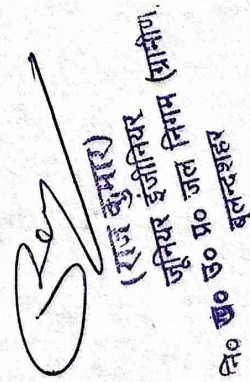 (राज कुमार)
जूनियर इंजीनियर
नि० ख० उ० प्र० जल निगम (ग्रामीण)
बुलन्दशहर